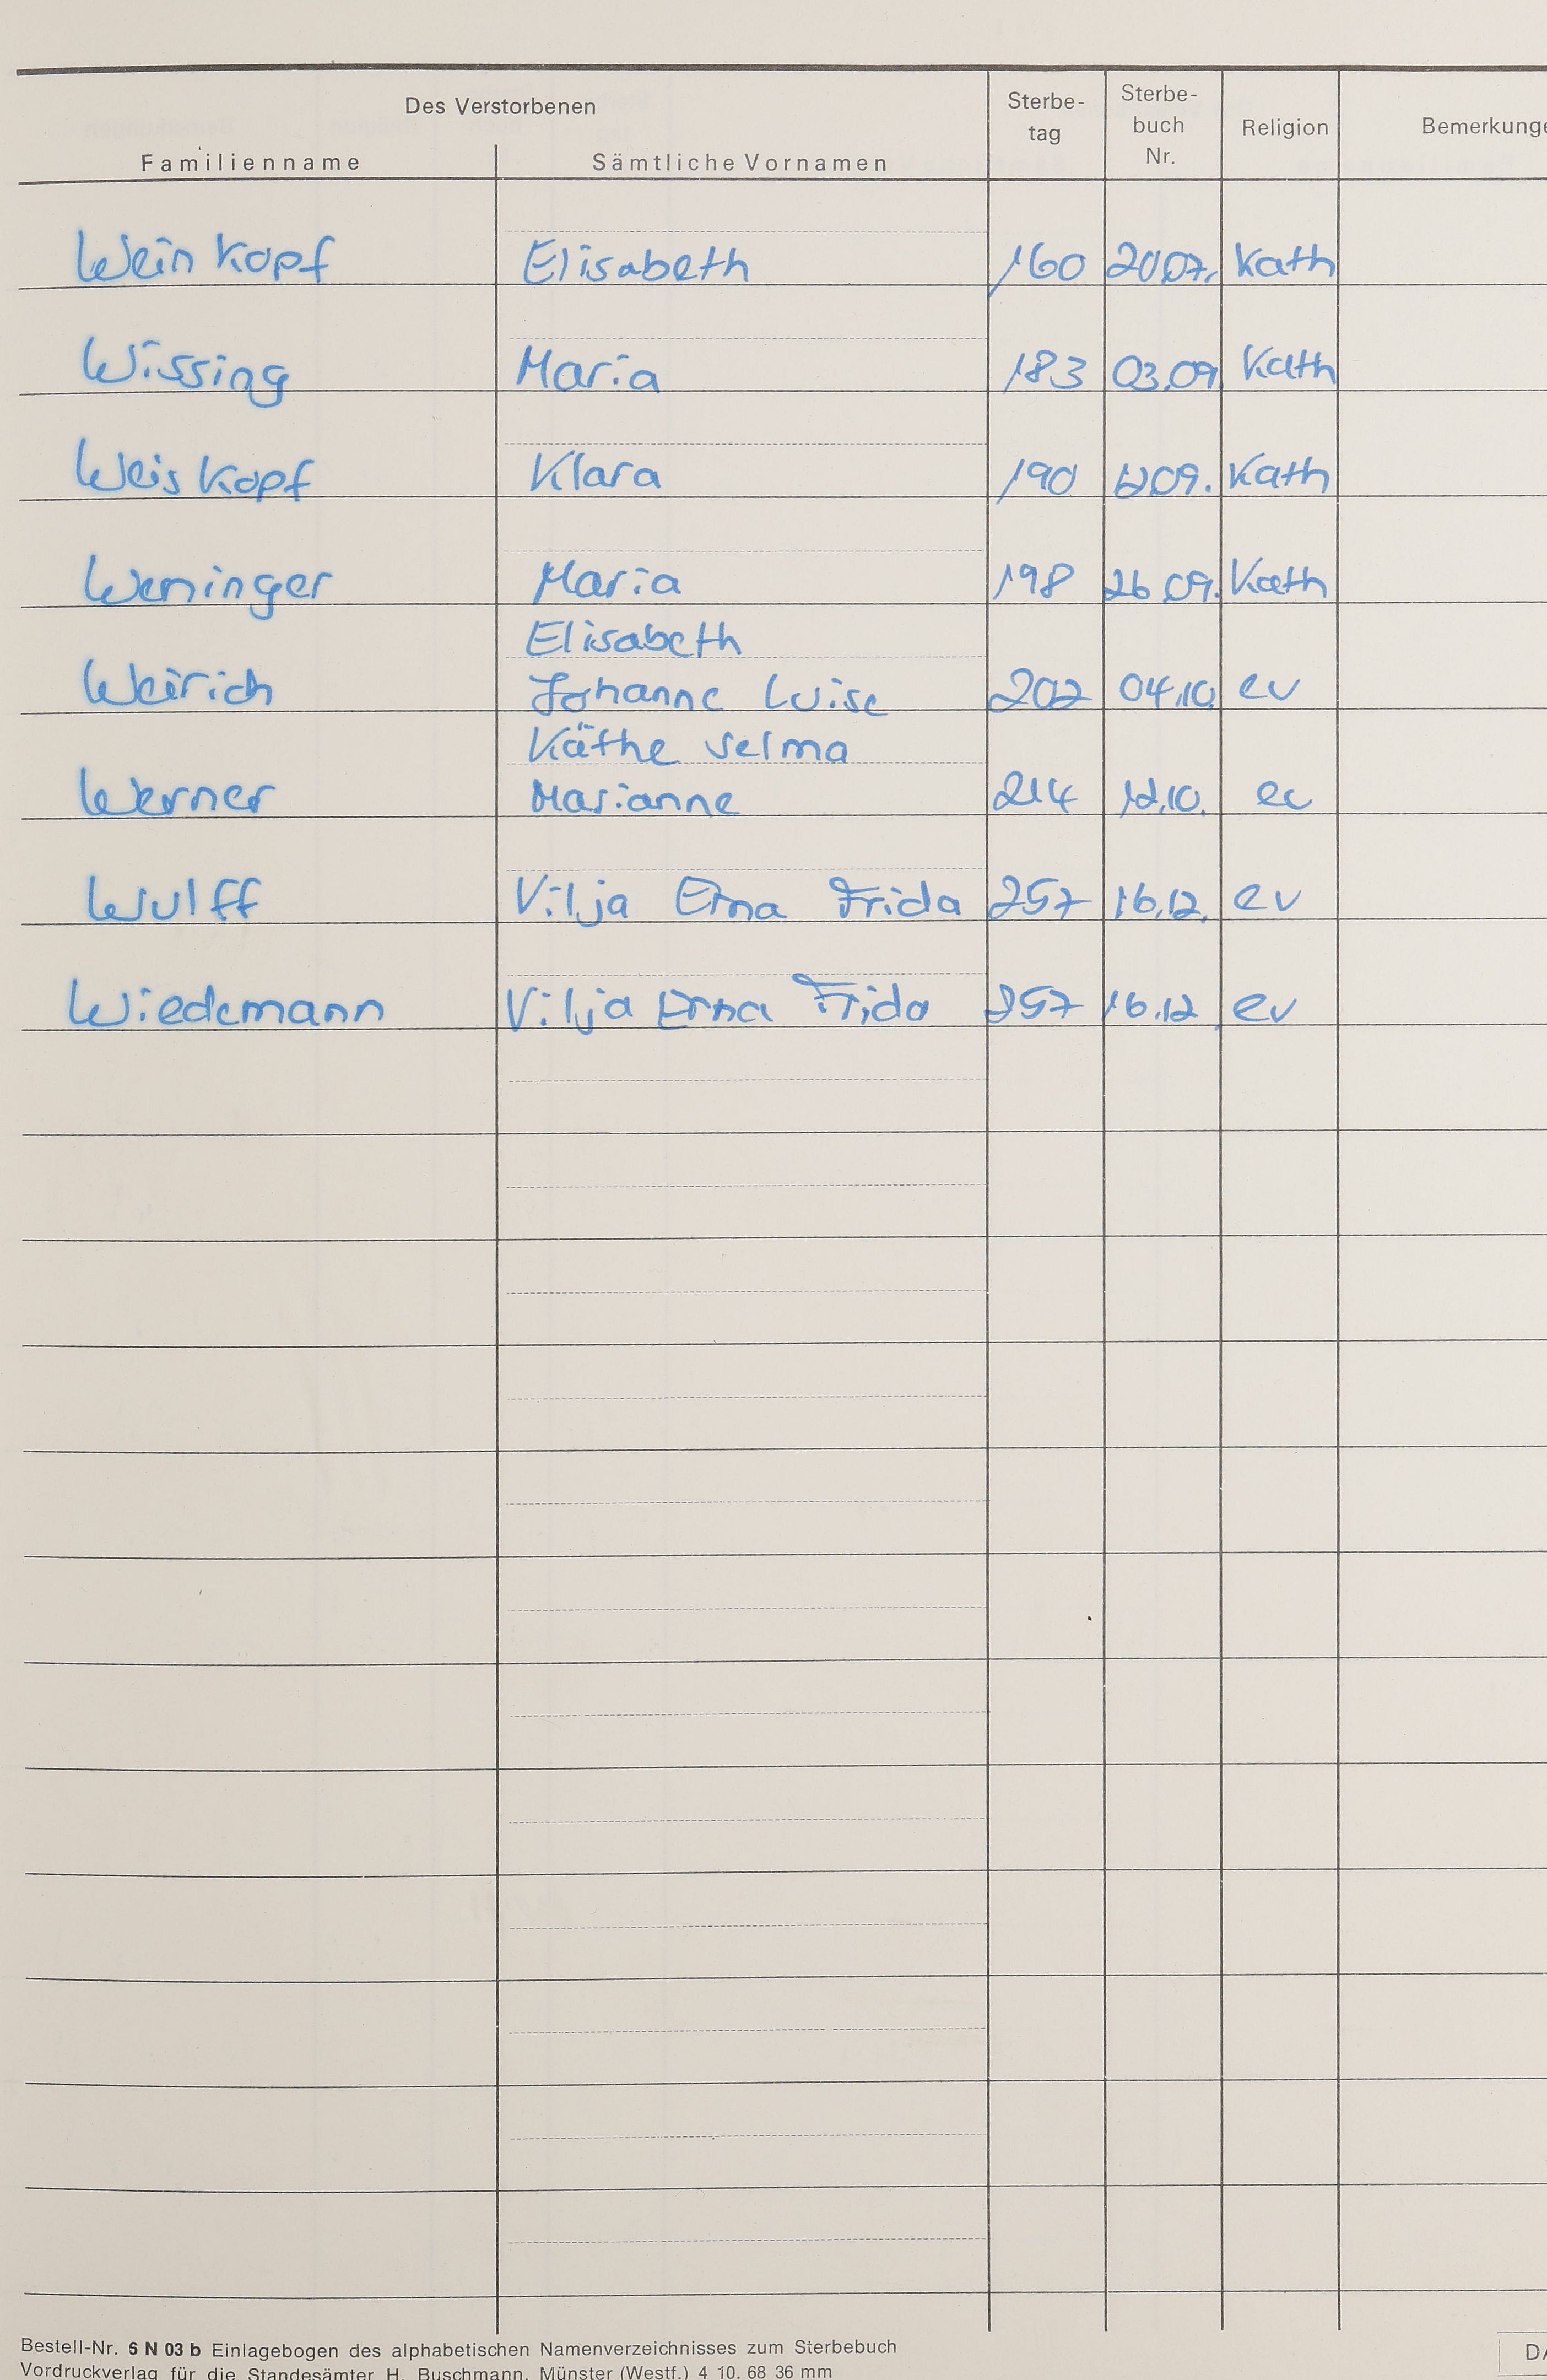 Des Verstorbenen
Familienname
Sämtliche Vornamen
Sterbe-
tag
Sterbe-
buch
Nr.
Religion
Bemerkunge
Weinkopf Elisabeth 160 20.07. Kath
Wissing Maria 183 03.09. Kath
Weiskopf Klara 190 09. Kath
Weninger Maria 198 26.09. Kath
Elisabeth
Weirich Johanne Luise 202 04.10. ev
Käthe Selma
Werner Marianne 214 12.10. ev
Wulff Vilja Erna Frida 257 16.12. ev
Wiedemann Vilja Erna Frida 257 16.12 ev
Bestell-Nr. S N 03 b Einlagebogen des alphabetischen Namenverzeichnisses zum Sterbebuch
Vordruckverlag für die Standesämter H. Buschmann, Münster (Westf.) 4 10. 68 36 mm